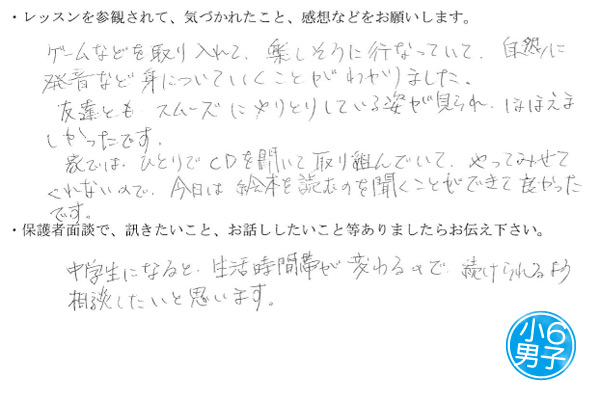 ・レッスンを参観されて、気づかれたこと、感想などをお願いします。
ゲームなどを取り入れて、楽しそうに行なっていて、自然に
発音など身についていくことがわかりました。
友達とも スムーズに やりとりしている姿が見られ、ほほえま
しかったです。
家では、ひとりでCDを聞いて取り組んでいて、やってみせて
くれないので、今日は絵本を読むのを聞くことができて良かった
です。
・保護者面談で、訊きたいこと、お話ししたいこと等ありましたらお伝え下さい。
中学生になると、生活時間帯が変わるので、続けられるよう
相談したいと思います。
小6
男子